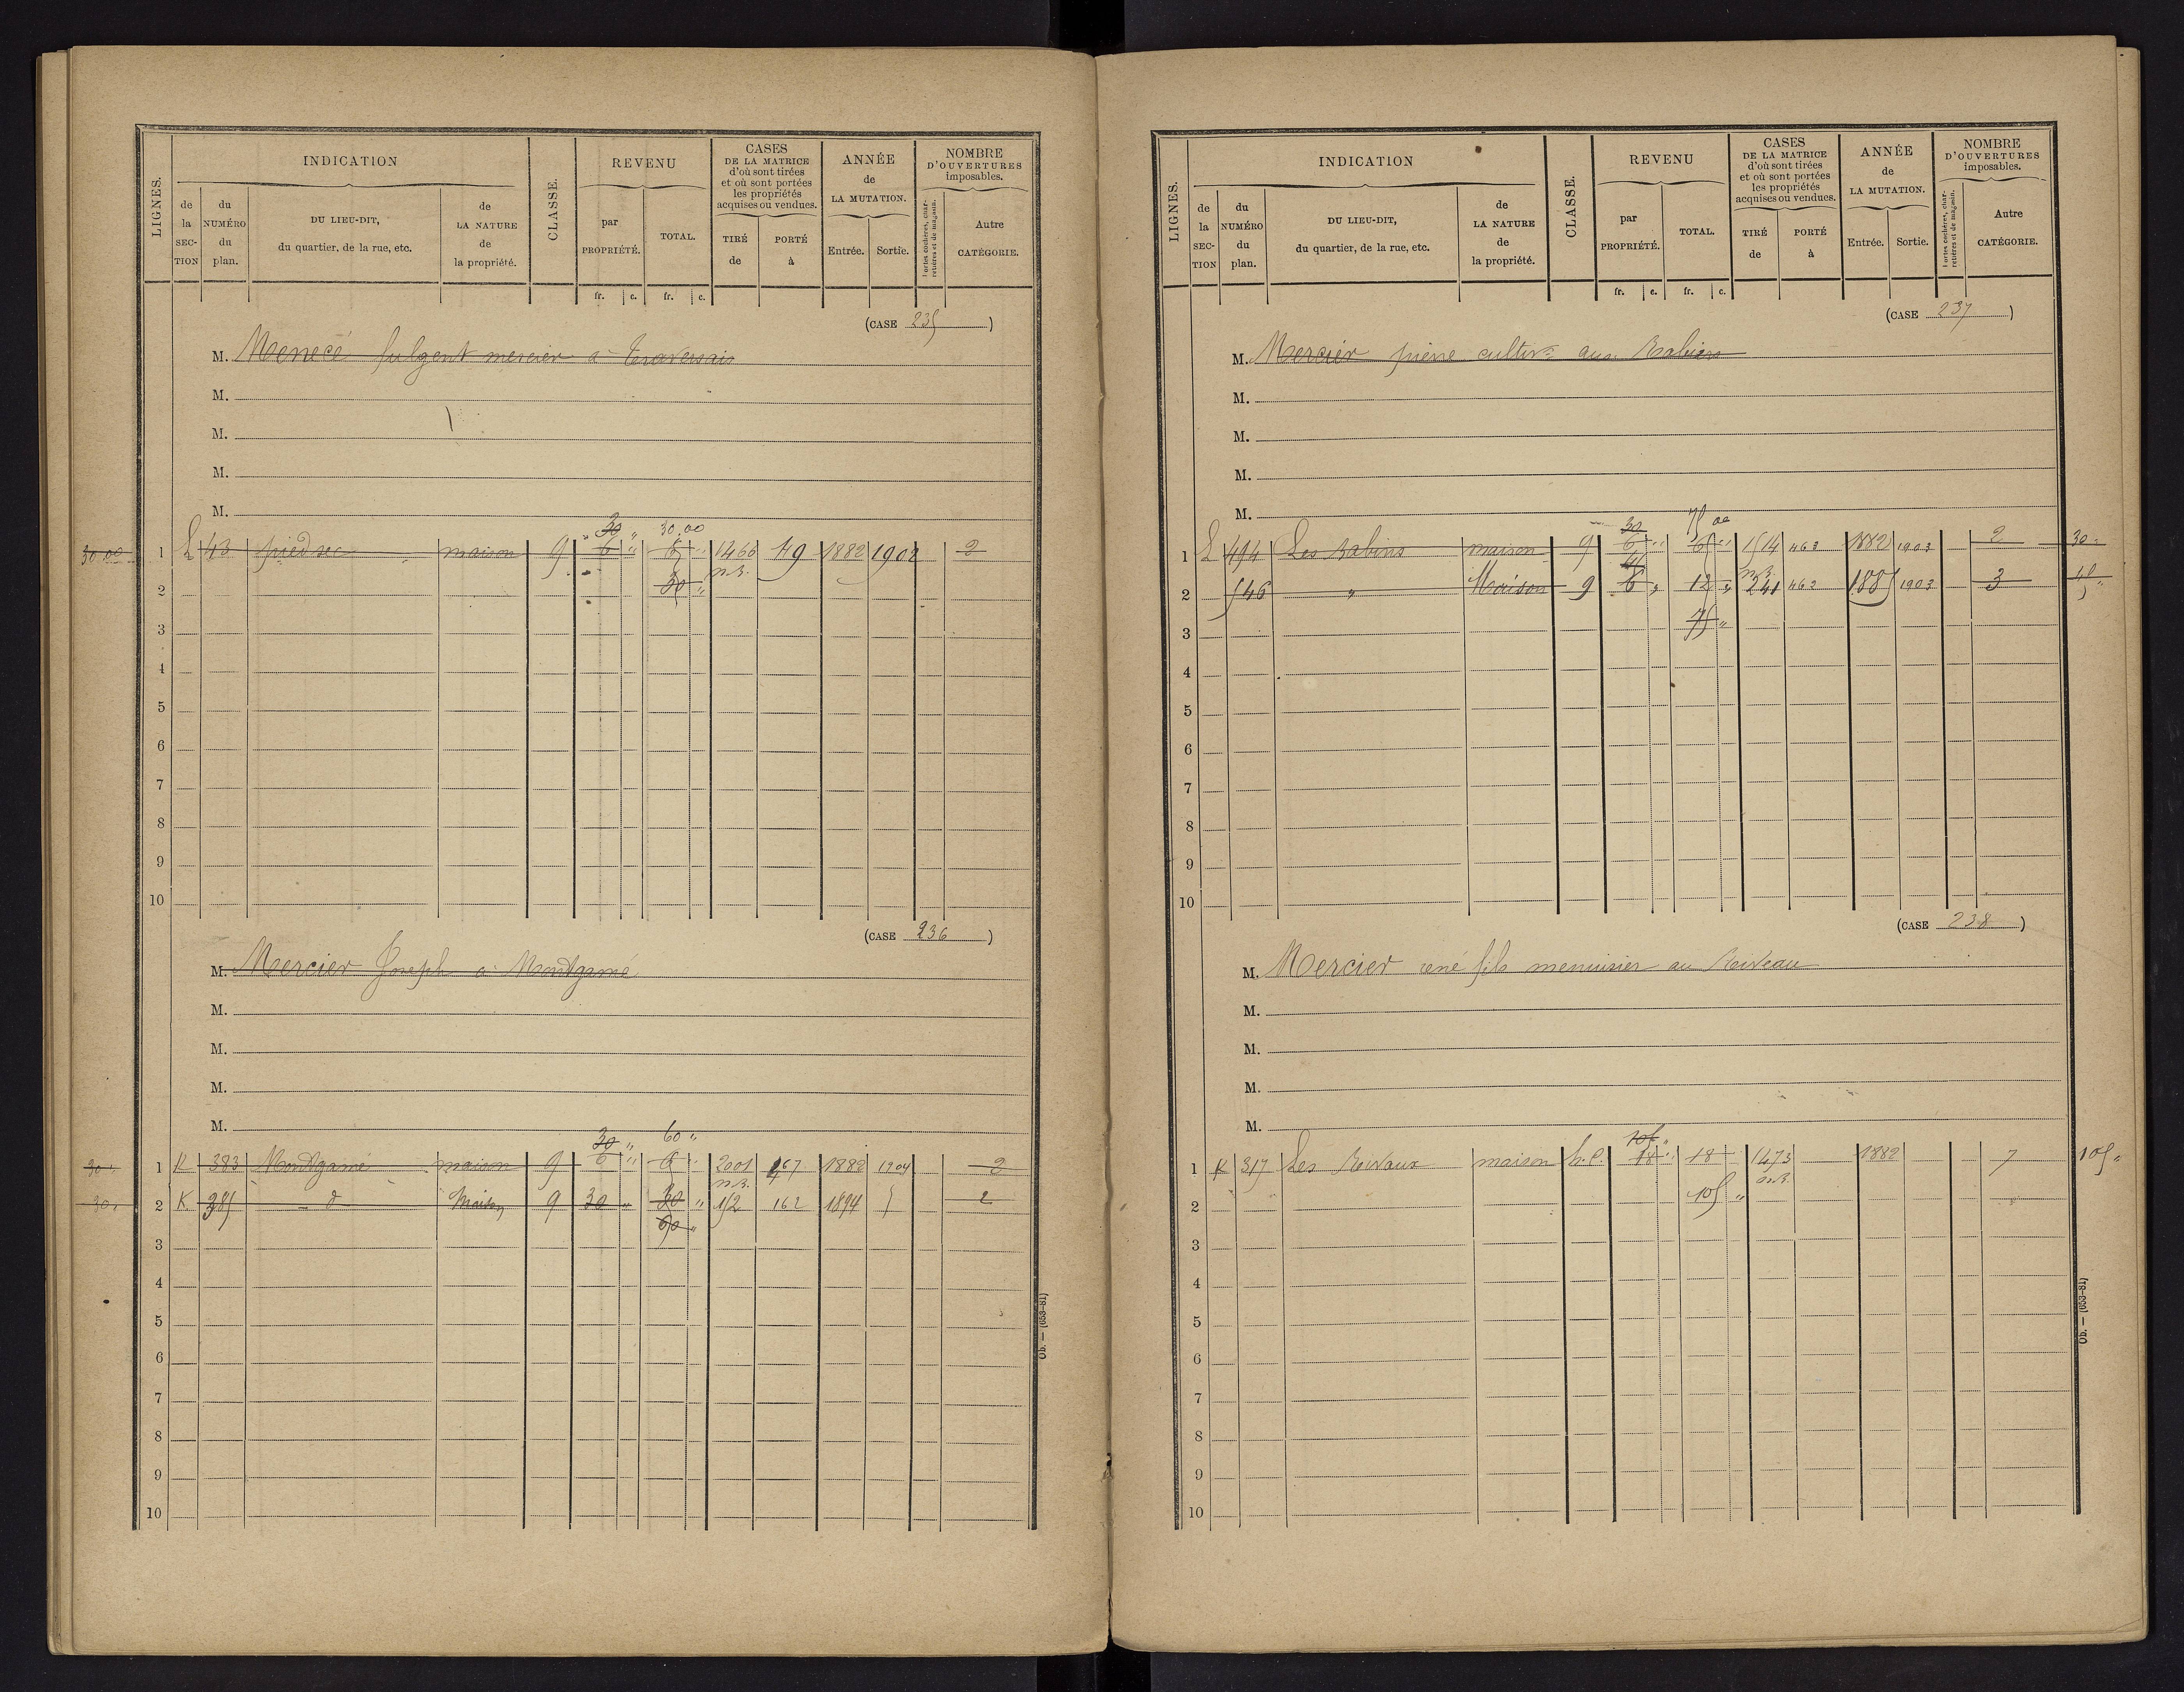 LIGNES.
INDICATION
CLASSE.
REVENU
CASES
DE LA MATRICE
d'où sont tirées
et où sont portées
les propriétés
acquises ou vendues.
ANNÉE
de
LA MUTATION.
NOMBRE
D'OUVERTURES
imposables.
de la SECTION
du NUMÉRO du plan.
DU LIEU-DIT,
du quartier, de la rue, etc.
de LA NATURE de la propriété.
par PROPRIÉTÉ.
TOTAL.
TIRÉ de
PORTÉ à
Entrée.
Sortie.
Portes cochères, charretières et de magasin.
Autre CATÉGORIE.
fr. c. fr. c.
(CASE 235)
M. Menecé fulgent mercier à Traversais
M.
M.
M.
M.
30 " 30.00
30 00 1 L 43 piedsec maison 9 6 " 6 " 1466 49 1882 1902 2
2 30 " n.R.
3
4
5
6
7
8
9
10
(CASE 236)
M. Mercier Joseph à Montgamé
M.
M.
M.
M.
30 " 60 "
30 " 1 K 383 Montgamé maison 9 6 " 6 " 2001 467 1882 1904 2
n.R.
30 " 2 K 385 - d - Maison 9 30 " 30 " 152 162 1894 2
60 "
3
4
5
6
7
8
9
10
Ob. — (653-81)
LIGNES.
INDICATION
CLASSE.
REVENU
CASES
DE LA MATRICE
d'où sont tirées
et où sont portées
les propriétés
acquises ou vendues.
ANNÉE
de
LA MUTATION.
NOMBRE
D'OUVERTURES
imposables.
de la SECTION
du NUMÉRO du plan.
DU LIEU-DIT,
du quartier, de la rue, etc.
de LA NATURE de la propriété.
par PROPRIÉTÉ.
TOTAL.
TIRÉ de
PORTÉ à
Entrée.
Sortie.
Portes cochères, charretières et de magasin.
Autre CATÉGORIE.
fr. c. fr. c.
(CASE 237)
M. Mercier pierre cultivr aux Rabins
M.
M.
M.
M.
30 75 00
1 L 494 Les Rabins maison 9 6 " 6 " 1514 463 1882 1903 2 30 "
45 n.R.
2 546 " Maison 9 6 " 12 " 241 463 1885 1903 3 45 "
3 75 "
4
5
6
7
8
9
10
(CASE 238)
M. Mercier rené fils menuisier au Riveau
M.
M.
M.
M.
105 "
1 K 317 Les Rivaux maison h.c. 18 " 18 " 1473 1882 7 105 "
2 105 " n.R.
3
4
5
6
7
8
9
10
Ob. — (653-81)